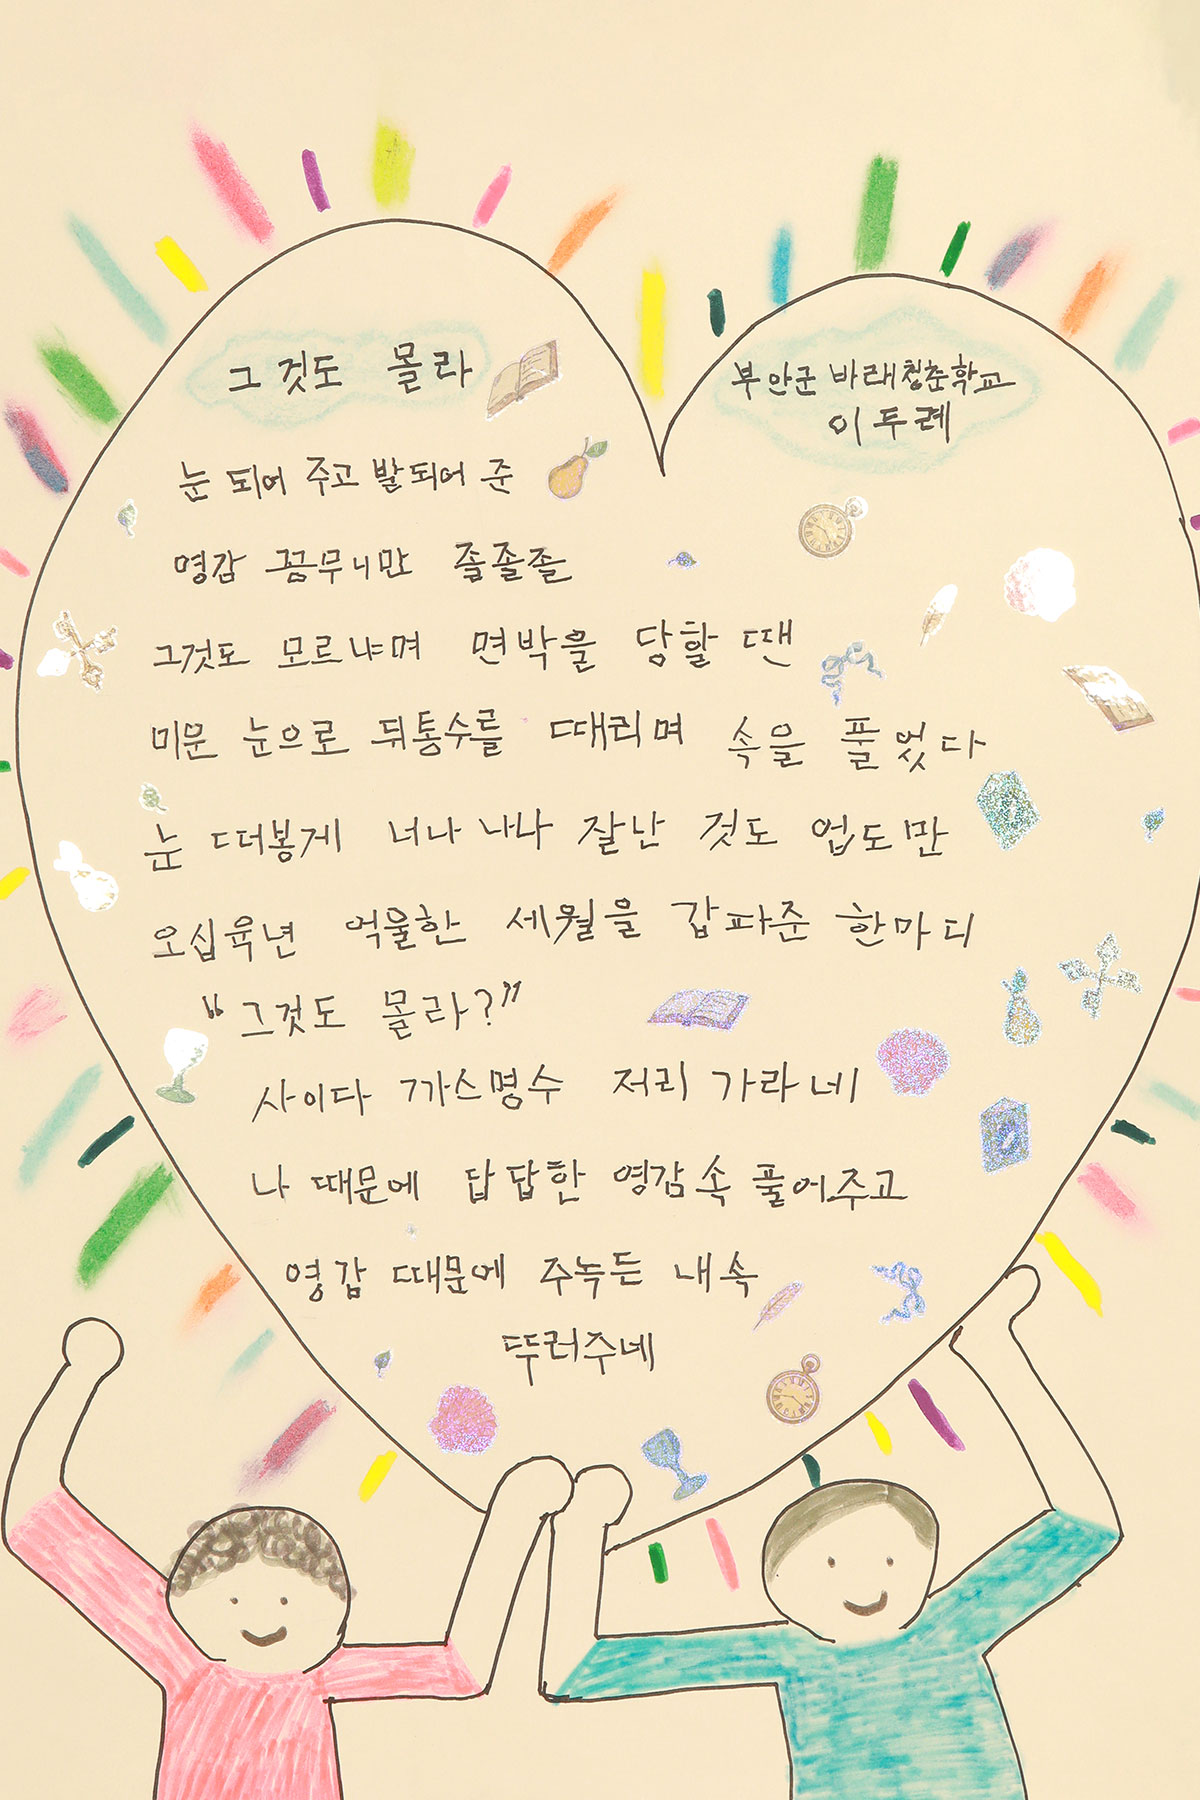 그것도 몰라
부안군 바래청춘학교
이두례
눈 되어 주고 발되어 준
영감 꽁무니만 졸졸졸
그것도 모르냐며 면박을 당할 땐
미운 눈으로 뒤통수를 때리며 속을 풀었다
눈 떠봉게 너나 나나 잘난 것도 업도만
오십육년 억울한 세월을 갑파준 한마디
“그것도 몰라?”
사이다 까스명수 저리 가라네
나 때문에 답답한 영감속 풀어주고
영감 때문에 주눅든 내속
뚜러주네